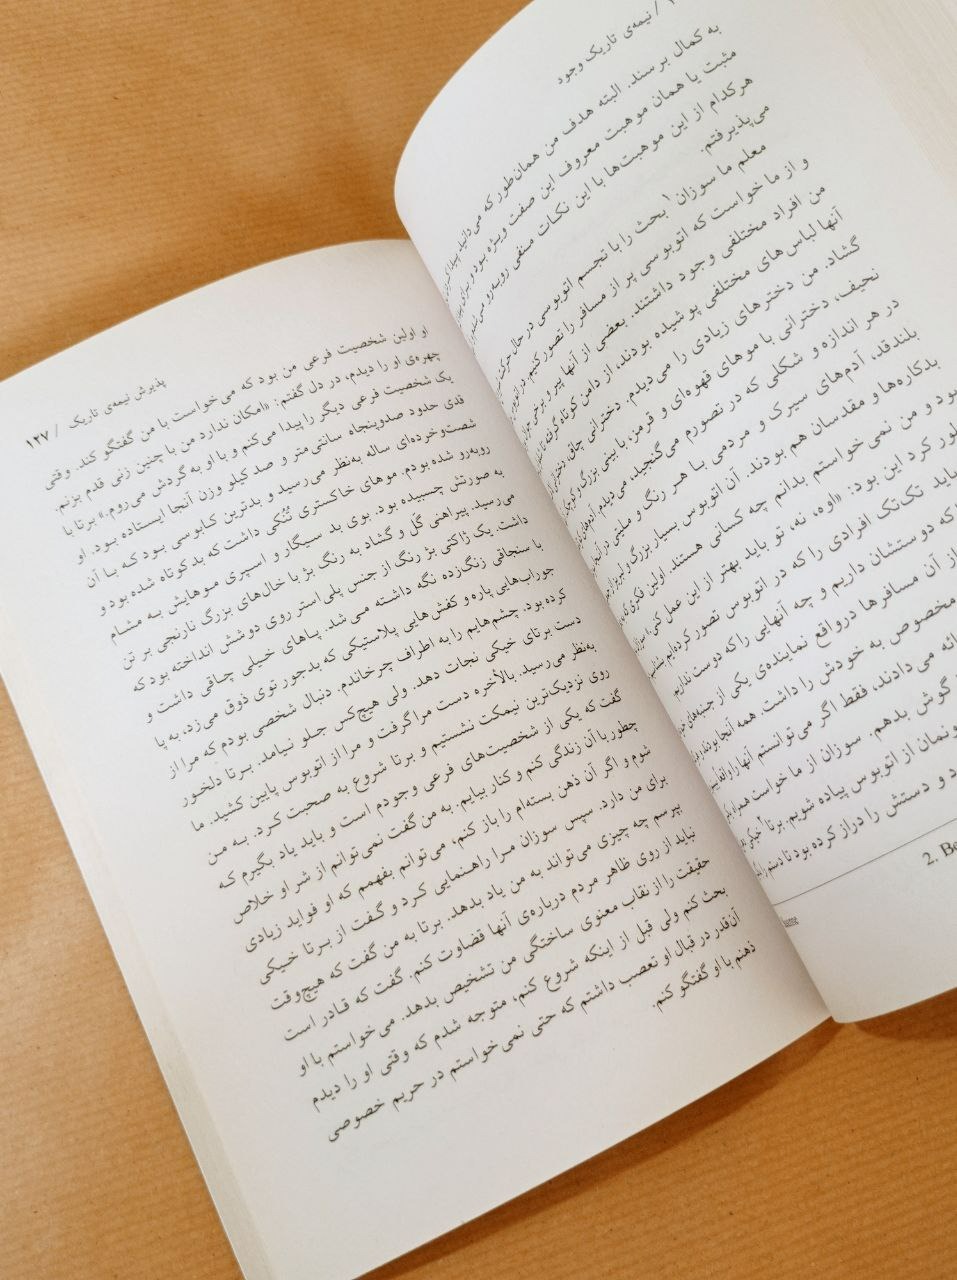 / نیمه‌ی تاریک وجود
به کمال برسند. البته هدف من همان‌طور که می‌دانید
مثبت یا همان موهبت معروف این صفت ویژه بود و برای
هرکدام از این موهبت‌ها با این نکات منفی روبه‌رو
می‌پذیرفتم.
معلم ما سوزان۱ بحث را با تجسم اتوبوسی در حال حرکت
و از ما خواست که اتوبوسی پر از مسافر را تصور کنیم. در
من افراد مختلفی وجود داشتند. بعضی از آنها پیر و برخی
آنها لباس‌های مختلفی پوشیده بودند، از دامن کوتاه گرفته تا
گشاد. من دخترهای زیادی را می‌دیدم. دخترانی چاق،
نحیف، دخترانی با موهای قهوه‌ای و قرمز، با بینی بزرگ و
در هر اندازه و شکلی که در تصورم می‌گنجید، می‌دیدم.
بلندقد، آدم‌های سیرک و مردمی با هر رنگ و ملیتی در آن
بدکاره‌ها و مقدسان هم بودند. آن اتوبوس بسیار بزرگ و لبریز از
بود و من نمی‌خواستم بدانم چه کسانی هستند. اولین فکری که
کرد این بود: «اوه، نه، تو باید بهتر از این عمل کنی!»
باید تک‌تک افرادی را که در اتوبوس تصور کرده‌ایم
که دوستشان داریم و چه آنهایی را که دوست نداریم
از آن مسافرها درواقع نماینده‌ی یکی از جنبه‌های
مخصوص به خودش را داشت. همه آنجا بودند
می‌دادند، فقط اگر می‌توانستم آنها را
گوش بدهم. سوزان از ما خواست همراه
از اتوبوس پیاده شویم. برتا۲
و دستش را دراز کرده بود تا دستم را
2. Be
پذیرش نیمه‌ی تاریک / ۱۲۷
او اولین شخصیت فرعی من بود که می‌خواست با من گفتگو کند. وقتی
چهره‌ی او را دیدم، در دل گفتم: «امکان ندارد من با چنین زنی قدم بزنم.
یک شخصیت فرعی دیگر را پیدا می‌کنم و با او به گردش می‌روم.» برتا با
قدی حدود صدوپنجاه سانتی‌متر و صد کیلو وزن آنجا ایستاده بود. او
شصت‌وخرده‌ای ساله به‌نظر می‌رسید و بدترین کابوسی بود که با آن
روبه‌رو شده بودم. موهای خاکستری تُنُکی داشت که بد کوتاه شده بود و
به صورتش چسبیده بود. بوی بد سیگار و اسپری موهایش به مشام
می‌رسید. پیراهنی گَل و گشاد به رنگ بژ با خال‌های بزرگ نارنجی بر تن
داشت. یک ژاکتی بژ رنگ از جنس پلی‌استر روی دوشش انداخته بود که
با سنجاقی زنگ‌زده نگه داشته می‌شد. پاهای خیلی چاقی داشت و
جوراب‌هایی پاره و کفش‌هایی پلاستیکی که بدجور توی ذوق می‌زد، به پا
کرده بود. چشم‌هایم را به اطراف چرخاندم. دنبال شخصی بودم که مرا از
دست برتای خیکی نجات دهد. ولی هیچ‌کس جلو نیامد. برتا دلخور
به‌نظر می‌رسید. بالأخره دست مرا گرفت و مرا از اتوبوس پایین کشید. ما
روی نزدیک‌ترین نیمکت نشستیم و برتا شروع به صحبت کرد. به من
گفت که یکی از شخصیت‌های فرعی وجودم است و باید یاد بگیرم که
چطور با آن زندگی کنم و کنار بیایم. به من گفت نمی‌توانم از شر او خلاص
شوم و اگر آن ذهن بسته‌ام را باز کنم، می‌توانم بفهمم که او فواید زیادی
برای من دارد. سپس سوزان مرا راهنمایی کرد و گفت از برتا خیکی
بپرسم چه چیزی می‌تواند به من یاد بدهد. برتا به من گفت که هیچ‌وقت
نباید از روی ظاهر مردم درباره‌ی آنها قضاوت کنم. گفت که قادر است
حقیقت را از نقاب معنوی ساختگی من تشخیص بدهد. می‌خواستم با او
بحث کنم ولی قبل از اینکه شروع کنم، متوجه شدم که وقتی او را دیدم
آن‌قدر در قبال او تعصب داشتم که حتی نمی‌خواستم در حریم خصوصی
ذهنم با او گفتگو کنم.